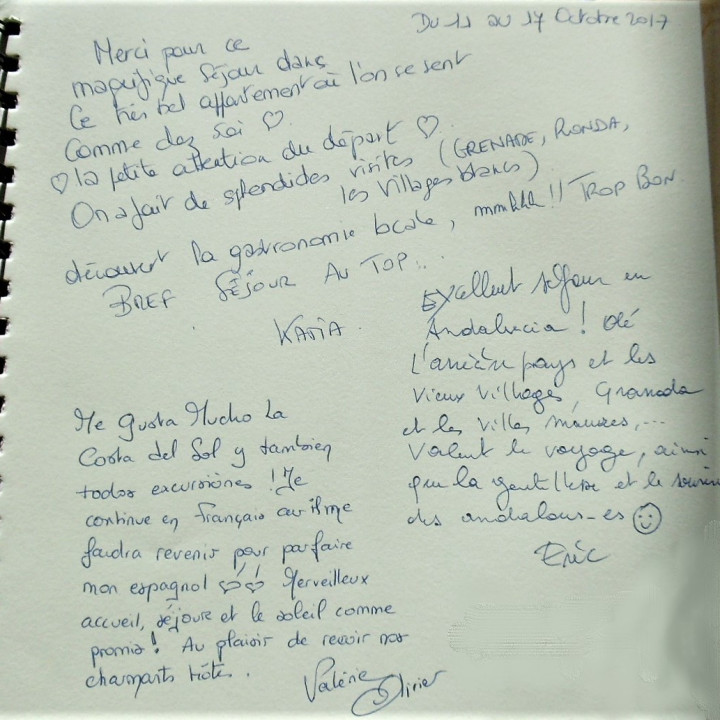 Du 11 au 17 Octobre 2017
Merci pour ce
magnifique séjour dans
Ce très bel appartement où l'on se sent
Comme chez soi ♡
♡ la petite attention du départ ♡
On a fait de splendides visites (GRENADE, RONDA,
les villages blancs)
découvert la gastronomie locale, mmhhh!! TROP BON.
BREF SÉJOUR AU TOP...
KATIA.
Excellent séjour en
Andalucia ! Olé
L'arrière pays et les
vieux villages, Granada
et les villes maures,...
Valent le voyage, ainsi
que la gentillesse et le sourire
des andalous-es ☺
Eric
Me gusta Mucho La
Costa del Sol y tambien
todos excursiònes ! Je
continue en français car il me
faudra revenir pour parfaire
mon espagnol ♡♡ Merveilleux
accueil, séjour et le soleil comme
promis ! Au plaisir de revoir nos
charmants hôtes.
Valérie
Olivier